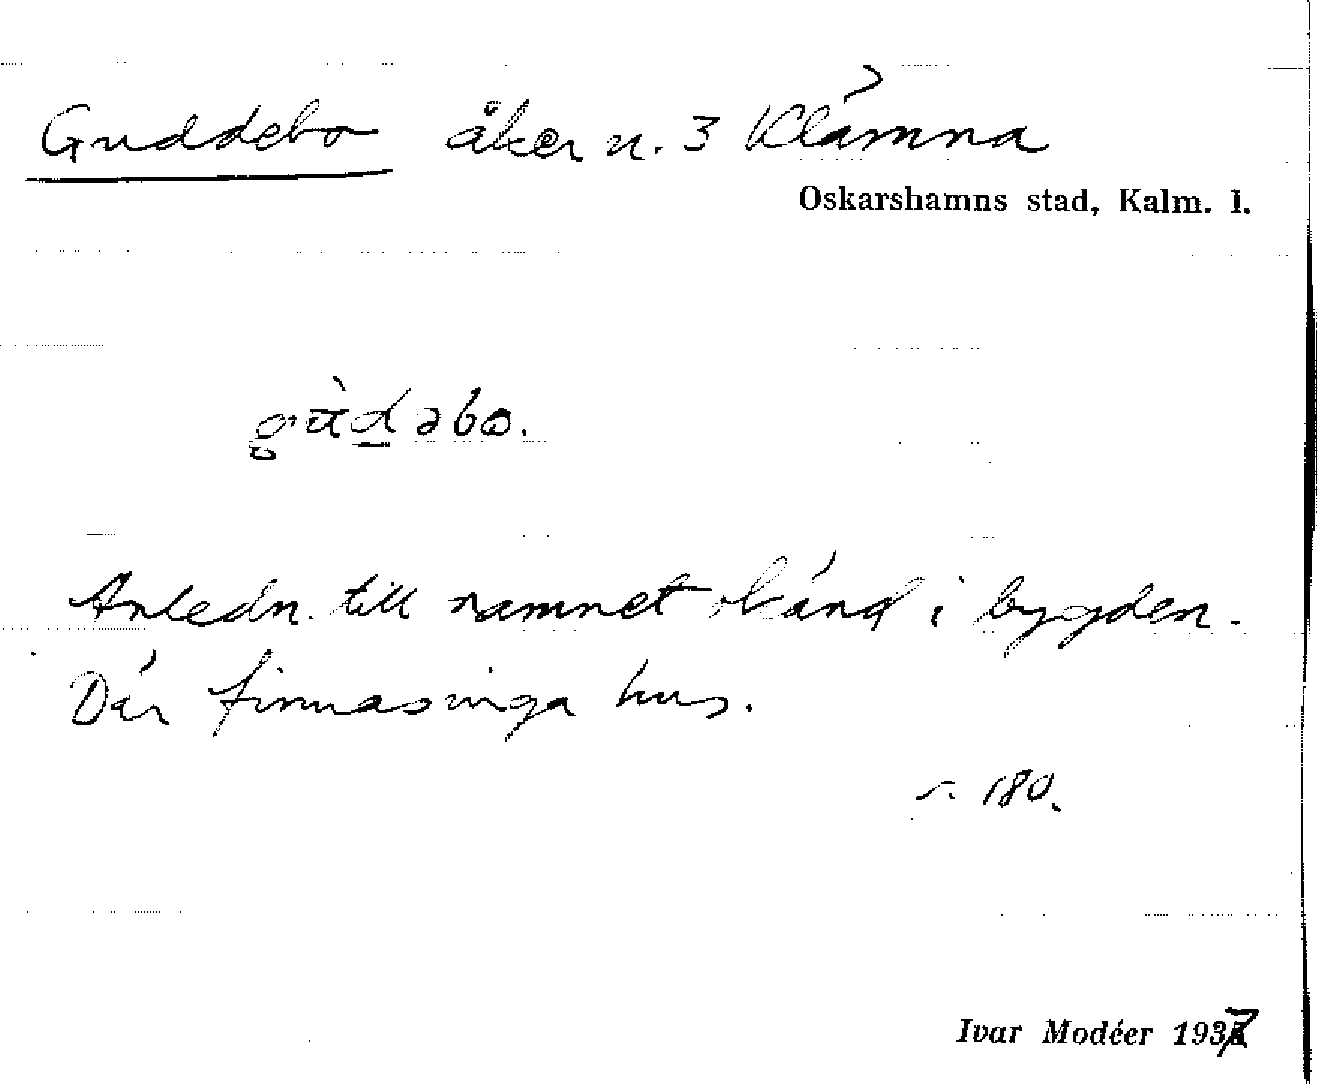 Guddebo åker n. 3 Klämna
Oskarshamns stad, Kalm. l.
Anledn. till namnet okänd i bygden.
Där finnas inga hus.
s. 180.
Ivar Modéer 1937